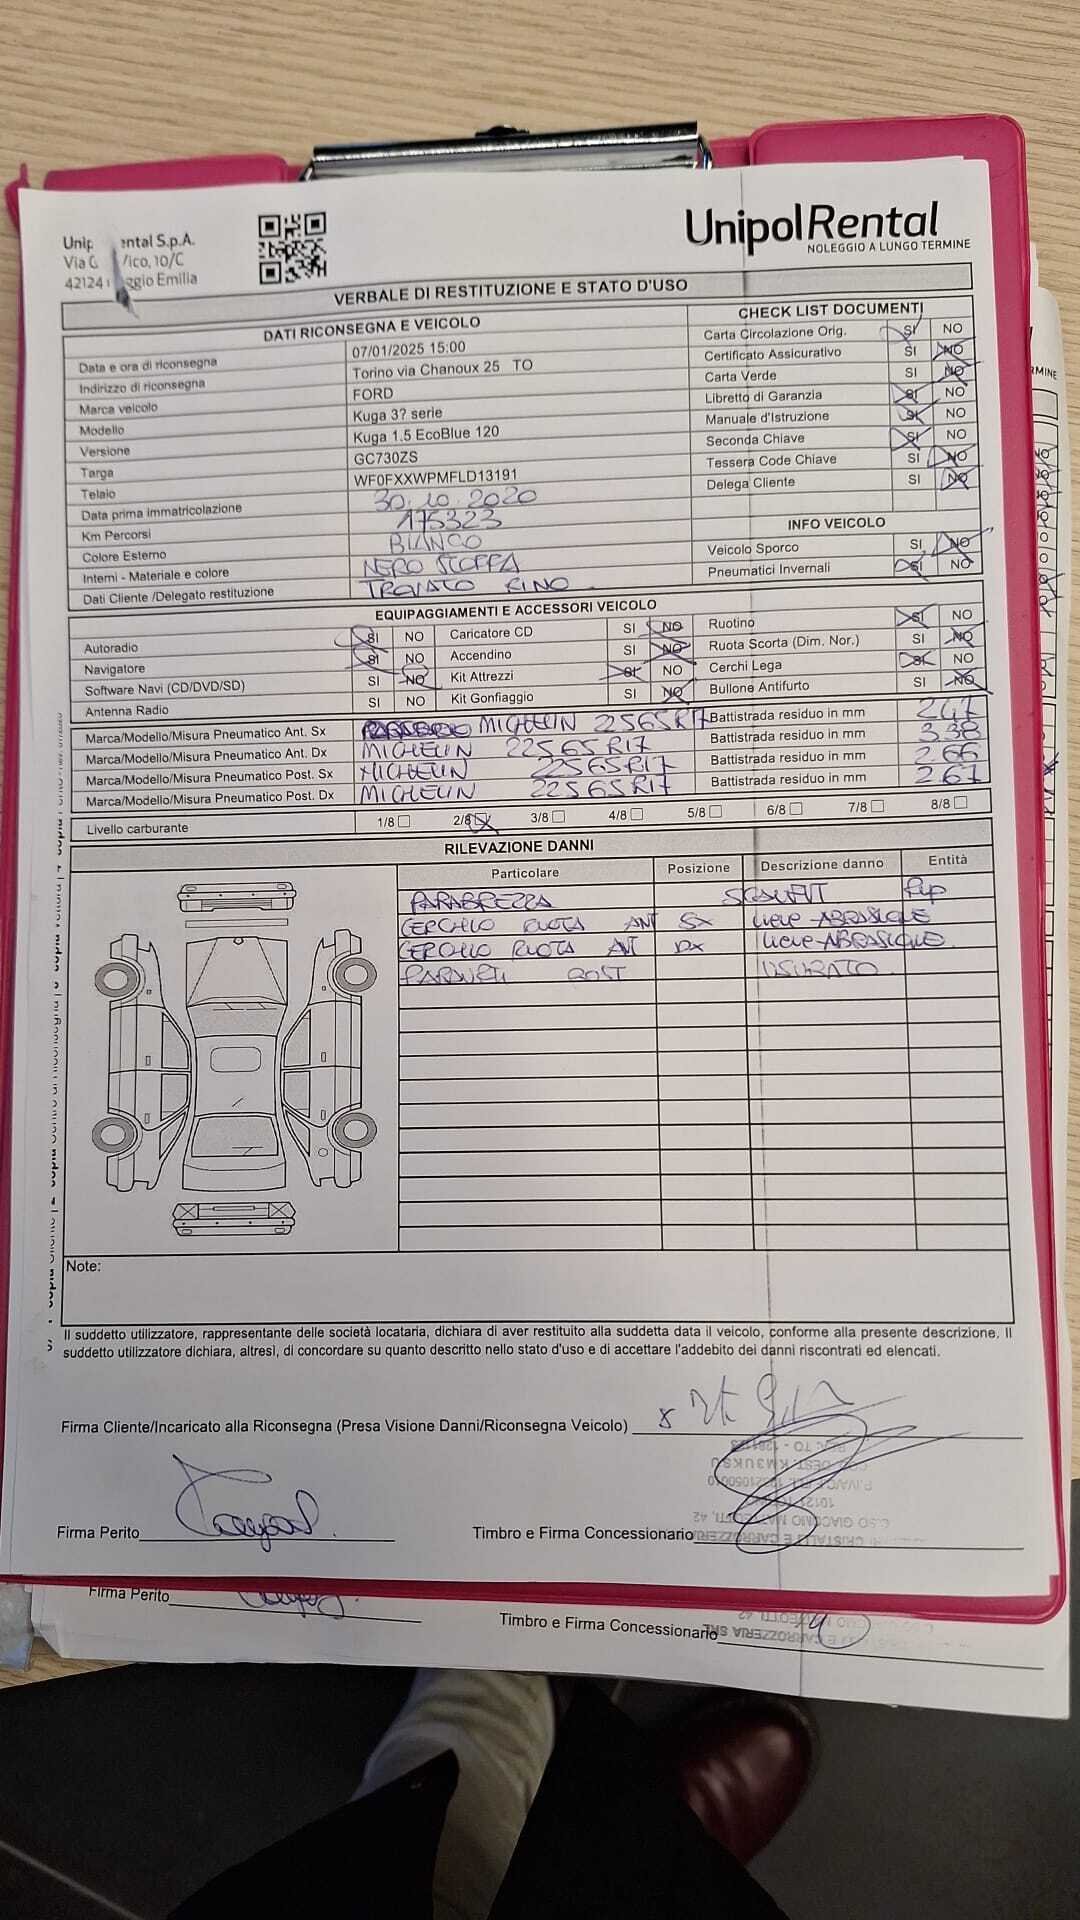 Unip ental S.p.A.
Via G Vico, 10/C
42124 ggio Emilia
UnipolRental
NOLEGGIO A LUNGO TERMINE
VERBALE DI RESTITUZIONE E STATO D'USO
DATI RICONSEGNA E VEICOLO
Data e ora di riconsegna 07/01/2025 15:00
Indirizzo di riconsegna Torino via Chanoux 25 TO
Marca veicolo FORD
Modello Kuga 3? serie
Versione Kuga 1.5 EcoBlue 120
Targa GC730ZS
Telaio WF0FXXWPMFLD13191
Data prima immatricolazione 30.10.2020
Km Percorsi 175323
Colore Esterno BIANCO
Interni - Materiale e colore NERO STOFFA
Dati Cliente /Delegato restituzione TROVATO RINO
CHECK LIST DOCUMENTI
Carta Circolazione Orig. SI NO
Certificato Assicurativo SI NO
Carta Verde SI NO
Libretto di Garanzia SI NO
Manuale d'Istruzione SI NO
Seconda Chiave SI NO
Tessera Code Chiave SI NO
Delega Cliente SI NO
INFO VEICOLO
Veicolo Sporco SI NO
Pneumatici Invernali SI NO
EQUIPAGGIAMENTI E ACCESSORI VEICOLO
Autoradio SI NO Caricatore CD SI NO Ruotino SI NO
Navigatore SI NO Accendino SI NO Ruota Scorta (Dim. Nor.) SI NO
Software Navi (CD/DVD/SD) SI NO Kit Attrezzi SI NO Cerchi Lega SI NO
Antenna Radio SI NO Kit Gonfiaggio SI NO Bullone Antifurto SI NO
Marca/Modello/Misura Pneumatico Ant. Sx MICHELIN 22565R17 Battistrada residuo in mm 2.47
Marca/Modello/Misura Pneumatico Ant. Dx MICHELIN 22565R17 Battistrada residuo in mm 3.38
Marca/Modello/Misura Pneumatico Post. Sx MICHELIN 22565R17 Battistrada residuo in mm 2.66
Marca/Modello/Misura Pneumatico Post. Dx MICHELIN 22565R17 Battistrada residuo in mm 2.67
Livello carburante 1/8 2/8 3/8 4/8 5/8 6/8 7/8 8/8
RILEVAZIONE DANNI
Particolare Posizione Descrizione danno Entità
PARABREZZA
CERCHIO RUOTA ANT SX LIEVE ABRASIONE
CERCHIO RUOTA ANT DX LIEVE ABRASIONE
POST USURATO
Note:
Il suddetto utilizzatore, rappresentante delle società locataria, dichiara di aver restituito alla suddetta data il veicolo, conforme alla presente descrizione. Il
suddetto utilizzatore dichiara, altresì, di concordare su quanto descritto nello stato d'uso e di accettare l'addebito dei danni riscontrati ed elencati.
Firma Cliente/Incaricato alla Riconsegna (Presa Visione Danni/Riconsegna Veicolo)
Firma Perito
Timbro e Firma Concessionario
Firma Perito
Timbro e Firma Concessionario